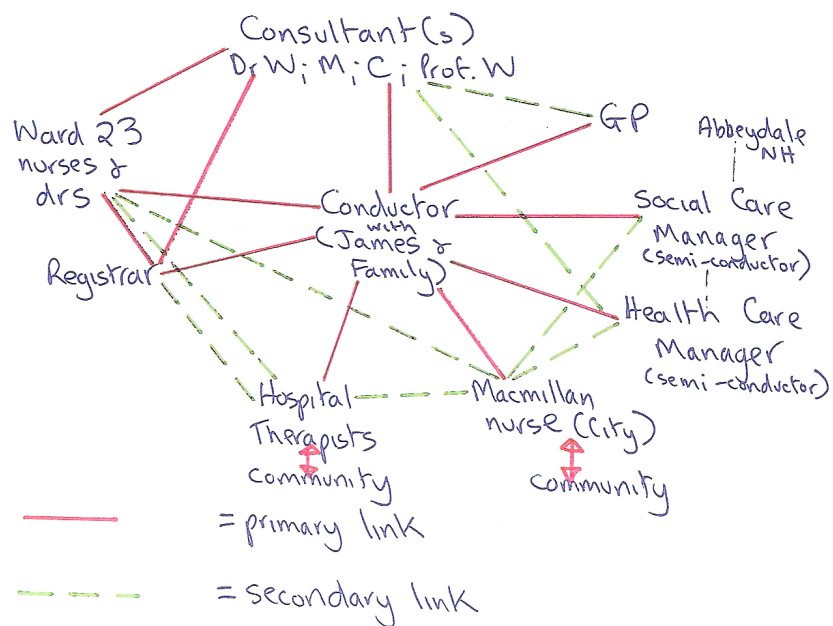 Consultant(s)
Dr W; M; C; Prof. W
GP
Abbeydale
NH
Ward 23
nurses &
drs
Conductor
with
(James &
Family)
Social Care
Manager
(semi-conductor)
Registrar
Health Care
Manager
(semi-conductor)
Hospital
Therapists
community
Macmillan
nurse (City)
community
= primary link
= secondary link